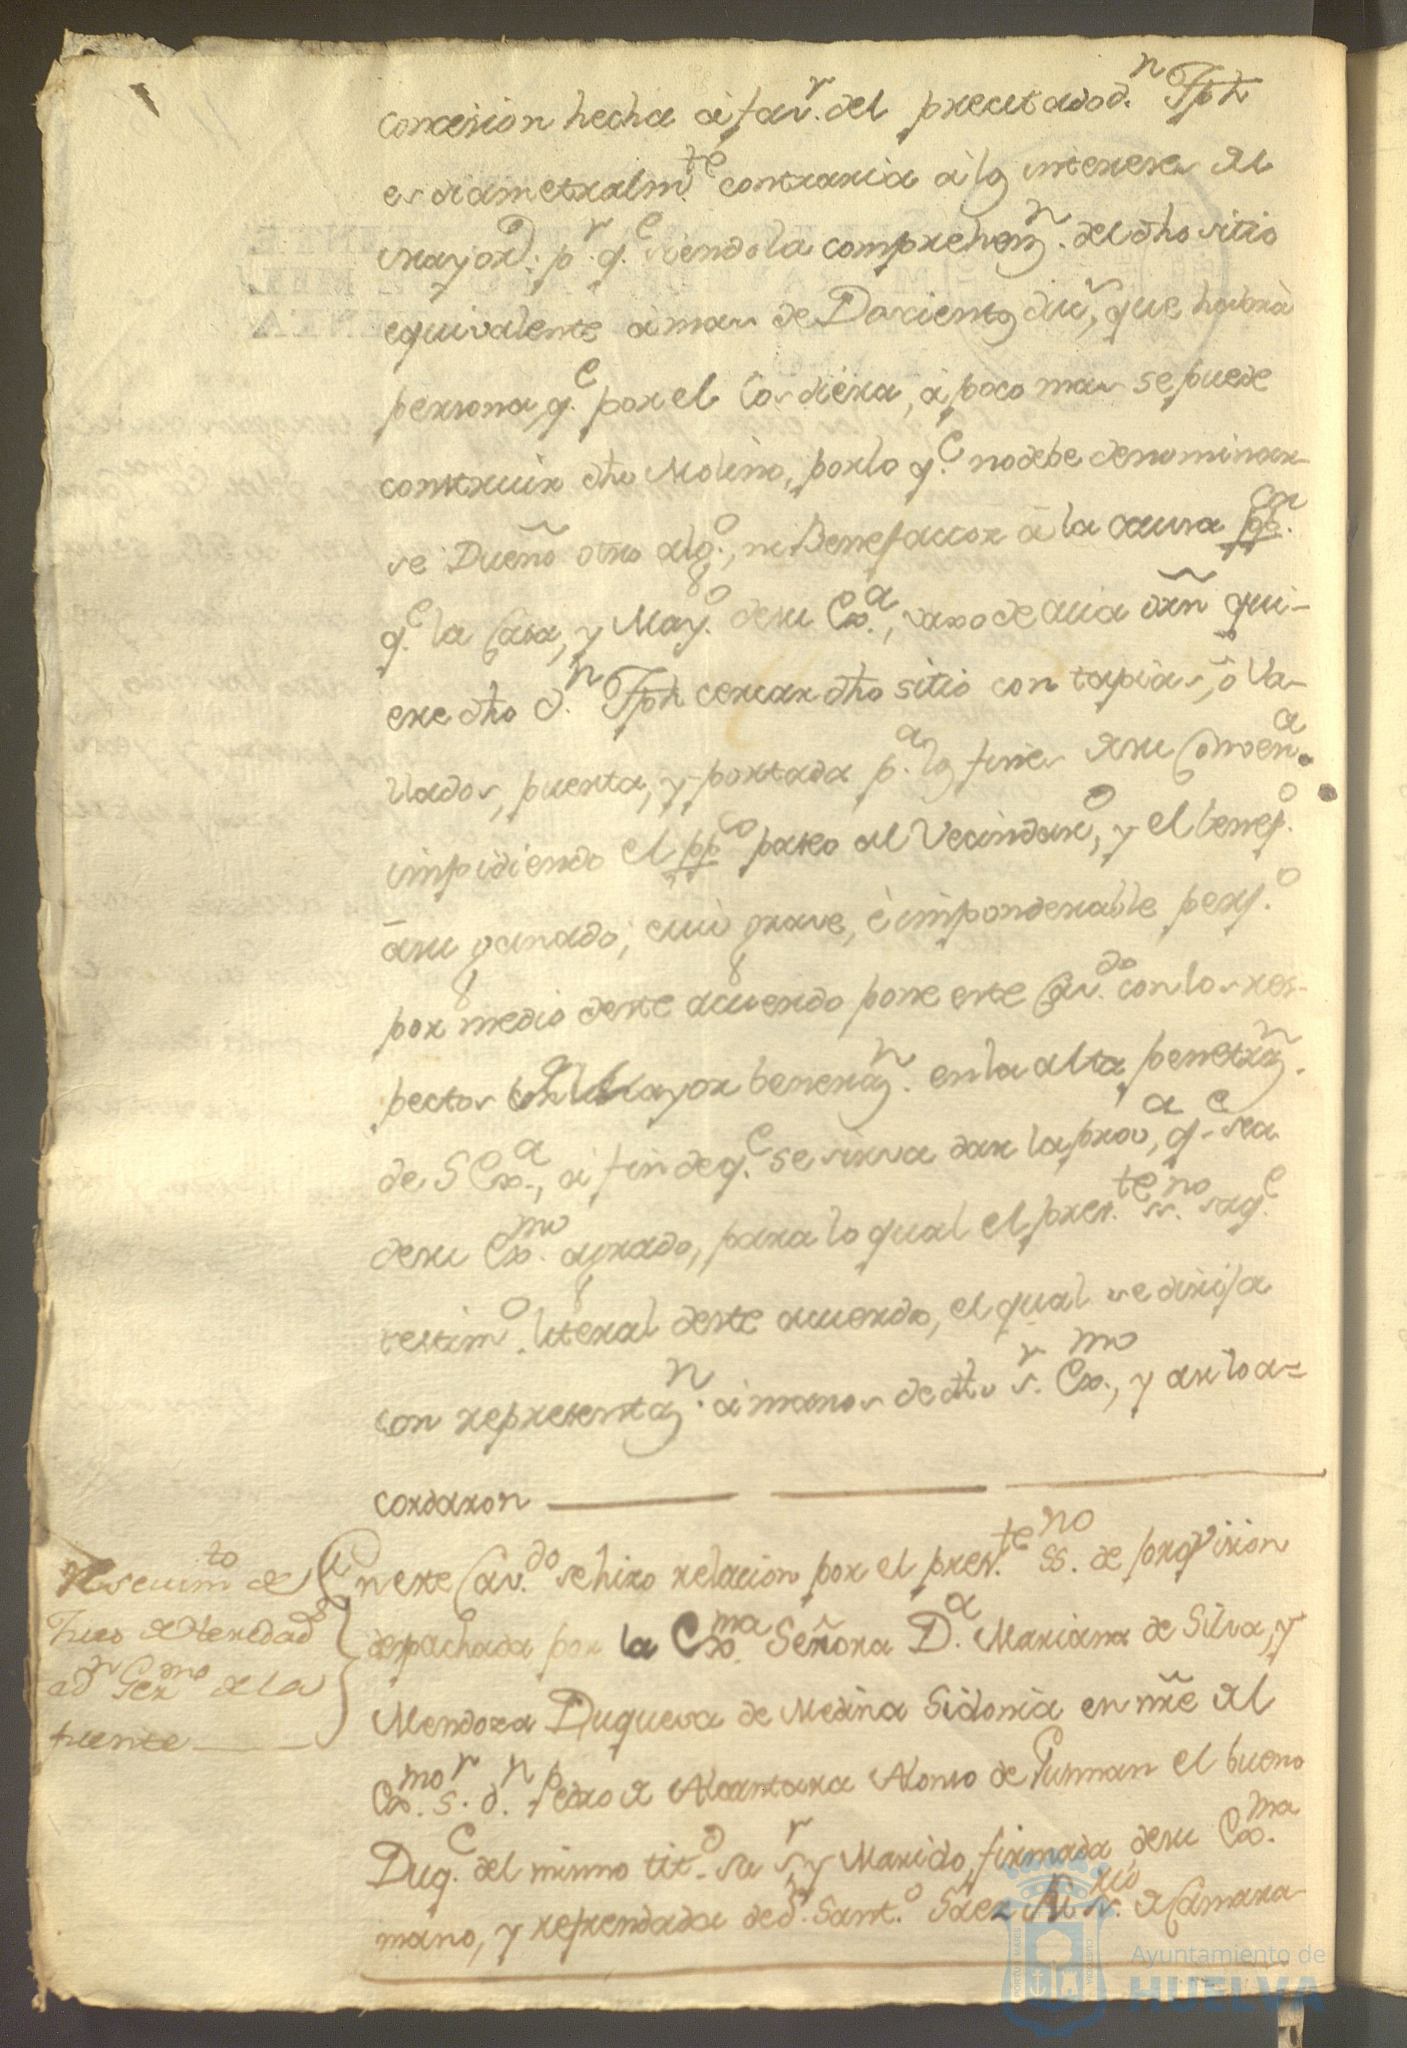 concesion hecha á fav.r del precitado d.n Jph
es diametralm.te contraria á los intereses del
mayord.o p.r q.e siendo la comprehen.n del dho sitio
equivalente á mas de Doscientos duc.s, que habrá
persona q.e por el Cordiera, á poco mas se puede
construir dho Molino, por lo q.e no debe denominar
se Dueño otro alg.o, ni Benefactor á la causa pp.ca
q.e la Casa, y May.o de su Ex.a, vaxo de cuia orñ qui-
ere dho d.n Jph cercar dho sitio con tapias, ó Va-
llados, puerta, y portada p.a los fines de su Conven.a
impidiendo el pp.co paseo al Vecindar.o, y el benef.o
á su ganado; cuio grave, é imponderable perj.o
por medio deste acuerdo pone este Cav.do con los res-
pectos con la mayor beneraz.n en la alta penetraz.n
de S Ex.a, á fin de q.e se sirva dar la prov.a, q.e sea
de su Ex.mo agrado, para lo qual el pres.te ss.no saq.e
testim.o literal deste acuerdo, el qual se dirija
con representaz.n á manos de dho s.r Ex.mo, y asi lo a=
cordaron
En este Cav.do se hizo relacion por el pres.te ss.no de provision
despachada por la Ex.ma Señora D.a Mariana de Silva, y
Mendoza Duquesa de Medina Sidonia en nre del
Ex.mo s.r d.n Pedro de Alcantara Alonso de Gusman el bueno
Duq.e del mismo tit.o su s.r y Marido, firmada de su Ex.ma
mano, y refrendada de d.n Sant.o Sáez su s.rio de Camara
Resevim.to de
Juez de Heredad.s
a d.n Ger.mo de la
fuente
Ayuntamiento de
HUELVA